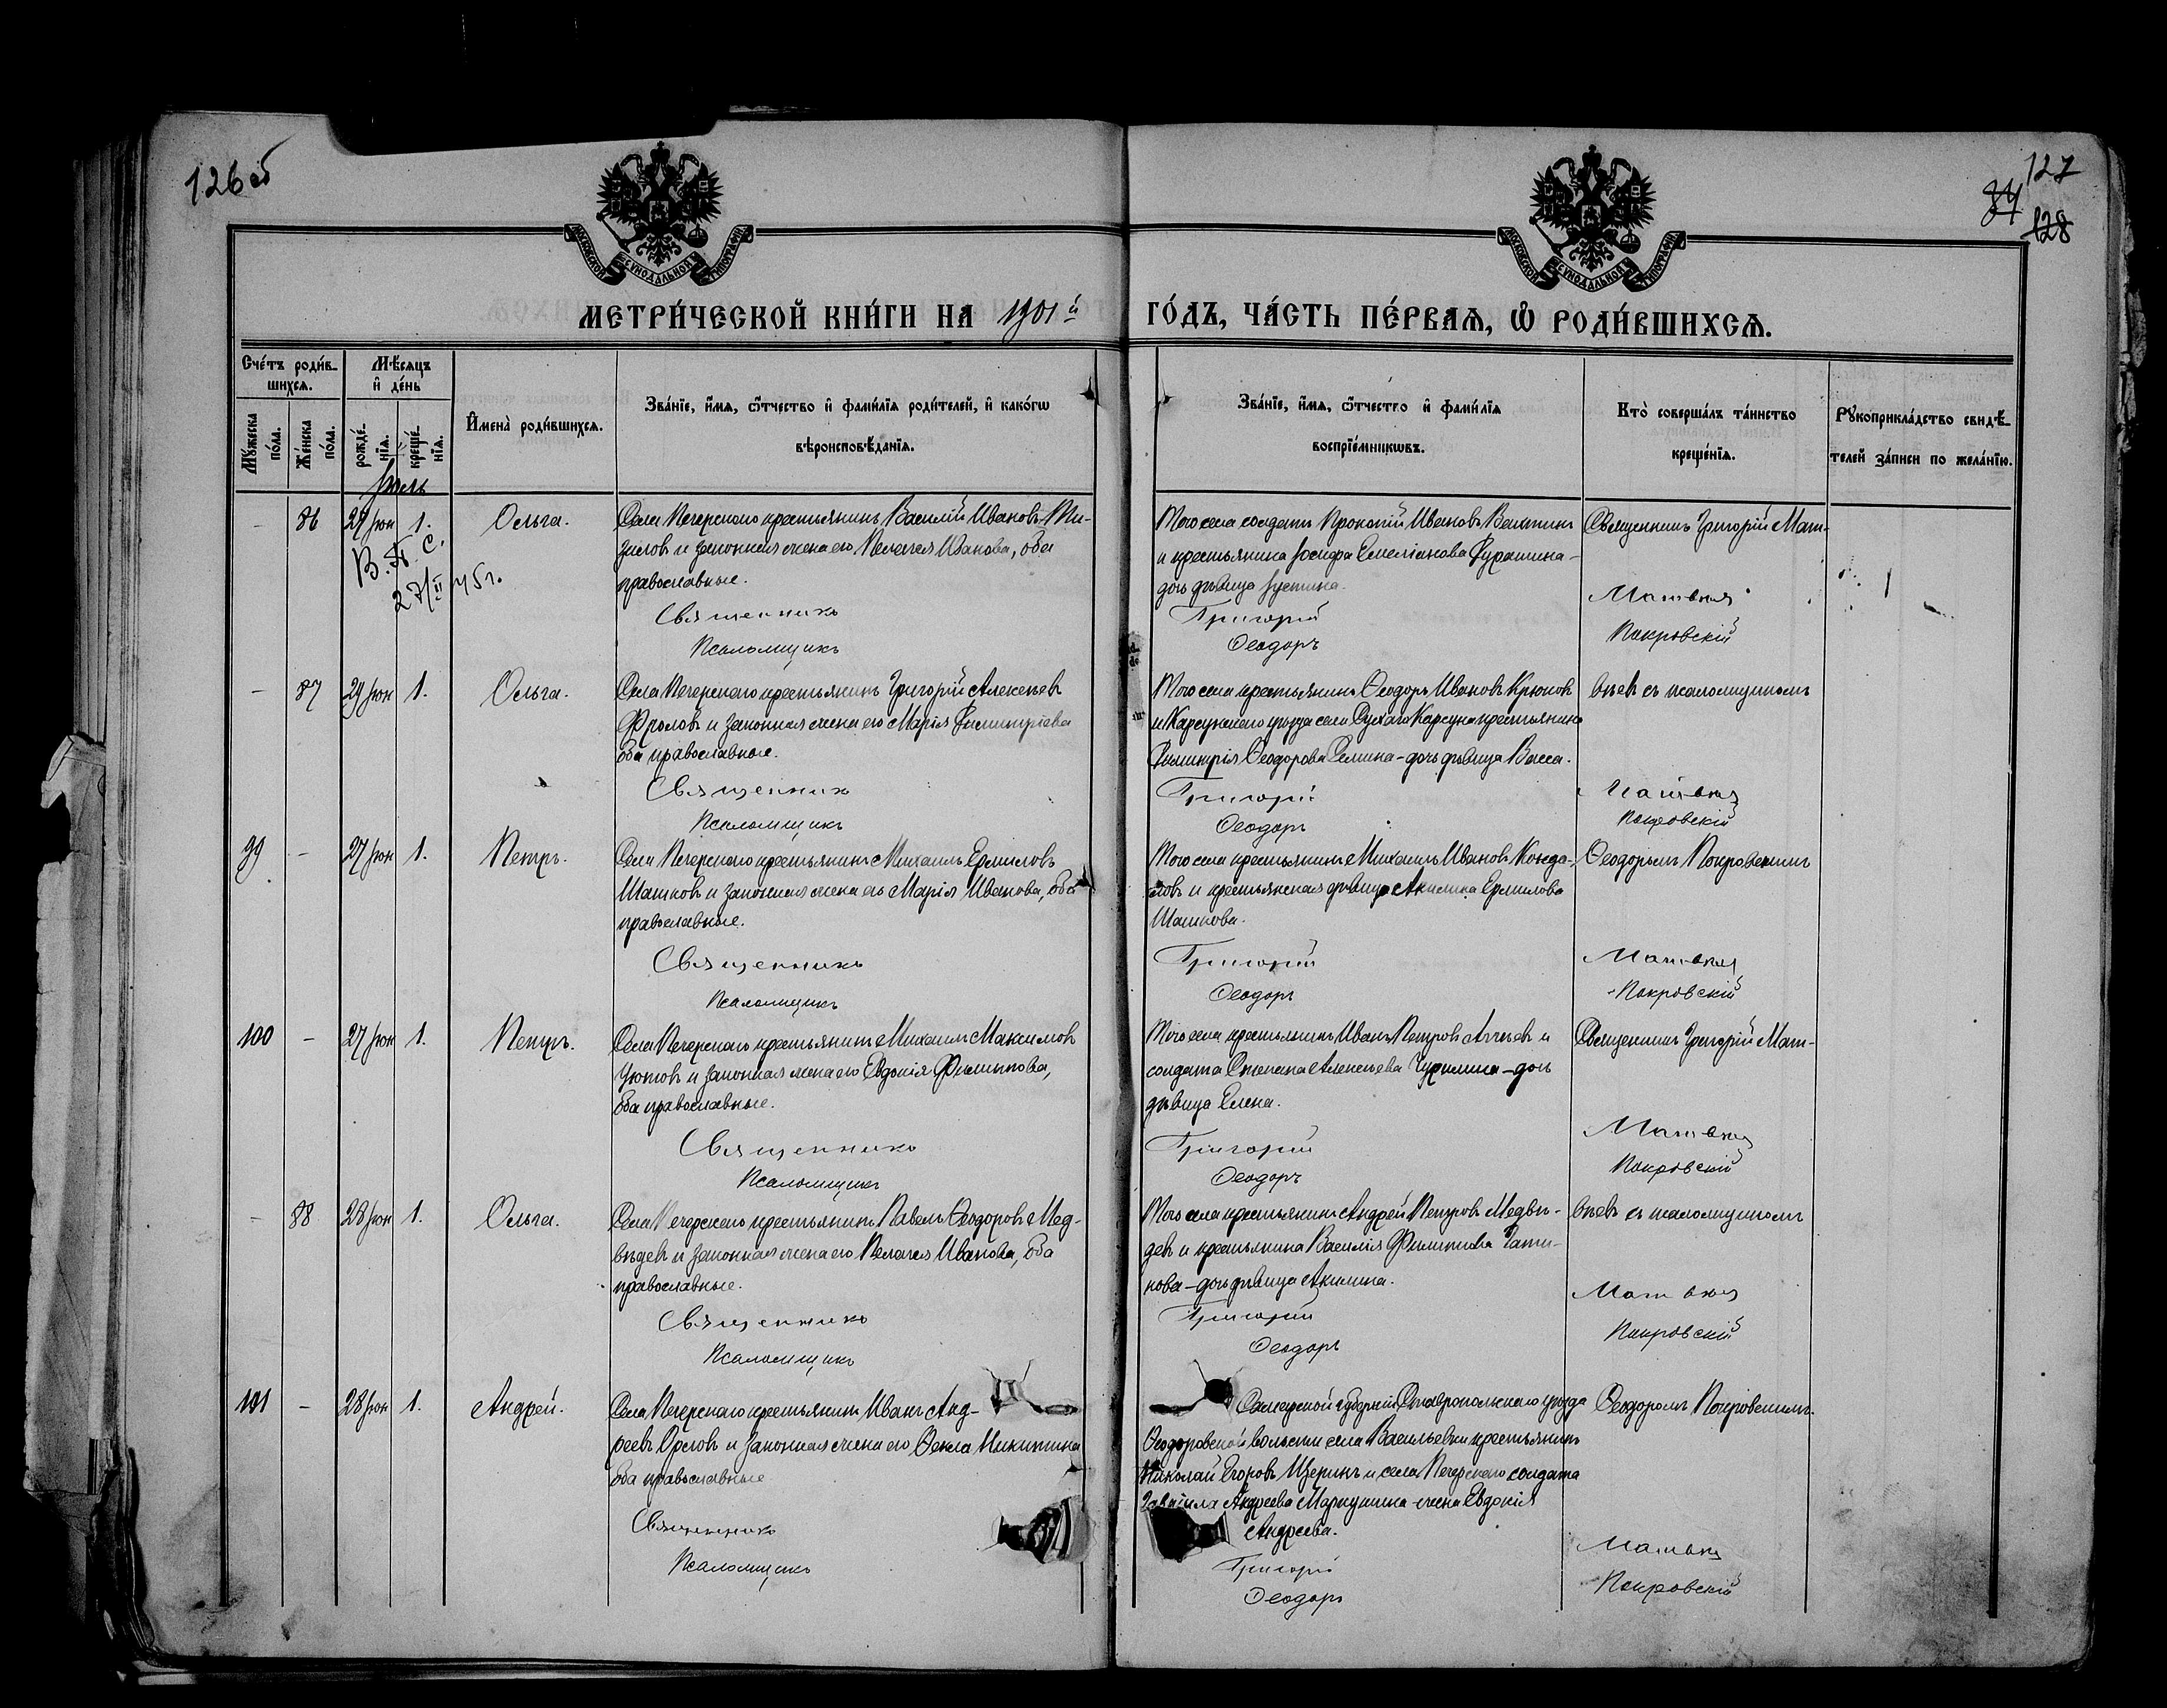 126 об
127
84
128
МОСКОВСКОЙ СѴНОДАЛЬНОЙ ТИПОГРАФІИ
МОСКОВСКОЙ СѴНОДАЛЬНОЙ ТИПОГРАФІИ
МЕТРИ́ЧЕСКОЙ КНИ́ГИ НА 1901й ГО́ДЪ, ЧА́СТЬ ПЕ́РВАѦ, Ѽ РОДИ́ВШИХСѦ.
Сче́тъ роди́в-
шихсѧ.
Мѣ́сѧцъ
и҆ де́нь
Мꙋ́жеска
по́ла.
Же́нска
по́ла.
рожде́-
нїѧ.
креще́-
нїѧ.
И҆мена̀ роди́вшихсѧ.
Зва́нїе, и҆́мѧ, ѻ҆́тчество и҆ фами́лїѧ роди́телей, и҆ како́гѡ
вѣроисповѣ́данїѧ.
Зва́нїе, и҆́мѧ, ѻ҆́тчество и҆ фами́лїѧ
воспрїе́мникѡвъ.
Кто̀ соверша́лъ та́инство
креще́нїѧ.
Рꙋкоприкла́дство свидѣ́-
телей за́писи по жела́нїю.
Іюль
– 86 29 Іюн 1. Ольга.
В. П. С.
27/II 45 г.
Села Печерскаго крестьянинъ Василій Ивановъ
и законная жена его Пелагея Иванова, оба
православные.
Священникъ
Псаломщикъ
Того села солдатъ Прокопій Ивановъ
и крестьянина Іосифа Емеліанова
дочь дѣвица Іустина.
Григорій
Ѳеодоръ
Священникъ Григорій Мат-
Матвѣев
Покровскій
– 87 29 Іюн 1. Ольга.
Села Печерскаго крестьянинъ Григорій Алексѣевъ
Фроловъ и законная жена его Марія Димитріева
оба православные.
Священникъ
Псаломщикъ
Того села крестьянинъ Ѳеодоръ Ивановъ Крюков
и Карсунскаго уѣзда села Сухаго Карсуна крестьянина
Димитрія Ѳеодорова Селина – дочь дѣвица Васса.
Григорій
Ѳеодоръ
вѣевъ съ псаломщикомъ
Матвѣев
Покровскій
99 – 27 Іюн 1. Петръ.
Села Печерскаго крестьянинъ Михаилъ Ермиловъ
Шашковъ и законная жена его Марія Иванова, оба
православные.
Священникъ
Псаломщикъ
Того села крестьянинъ Михаилъ Ивановъ Конда-
ловъ и крестьянская дѣвица Акилина Ермилова
Шашкова.
Григорій
Ѳеодоръ
Ѳеодоромъ Покровскимъ
Матвѣев
Покровскій
100 – 27 Іюн 1. Петръ.
Села Печерскаго крестьянинъ Михаилъ Максимовъ
и законная жена его Евдокія Филиппова,
оба православные.
Священникъ
Псаломщикъ
Того села крестьянинъ Иванъ Петровъ и
солдата Степана Алексѣева – дочь
дѣвица Елена.
Григорій
Ѳеодоръ
Священникъ Григорій Мат-
Матвѣев
Покровскій
– 88 28 Іюн 1. Ольга.
Села Печерскаго крестьянинъ Павелъ Ѳеодоровъ Мед-
вѣдевъ и законная жена его Пелагея Иванова, оба
православные.
Священникъ
Псаломщикъ
Того села крестьянинъ Андрей Петровъ Медвѣ-
девъ и крестьянина Василія Филиппова
нова – дочь дѣвица Акилина.
Григорій
Ѳеодоръ
вѣевъ съ псаломщикомъ
Матвѣев
Покровскій
101 – 28 Іюн 1. Андрей.
Села Печерскаго крестьянинъ Иванъ Анд-
реевъ Орловъ и законная жена его Ѳекла Никитина
оба православные
Священникъ
Псаломщикъ
Самарской губерніи Ставропольскаго уѣзда
Ѳеодоровской волости села Васильевки крестьянинъ
Николай Егоровъ и села Печерскаго солдата
Гавріила Андреева жена Евдокія
Андреева.
Григорій
Ѳеодоръ
Ѳеодоромъ Покровскимъ.
Матвѣев
Покровскій